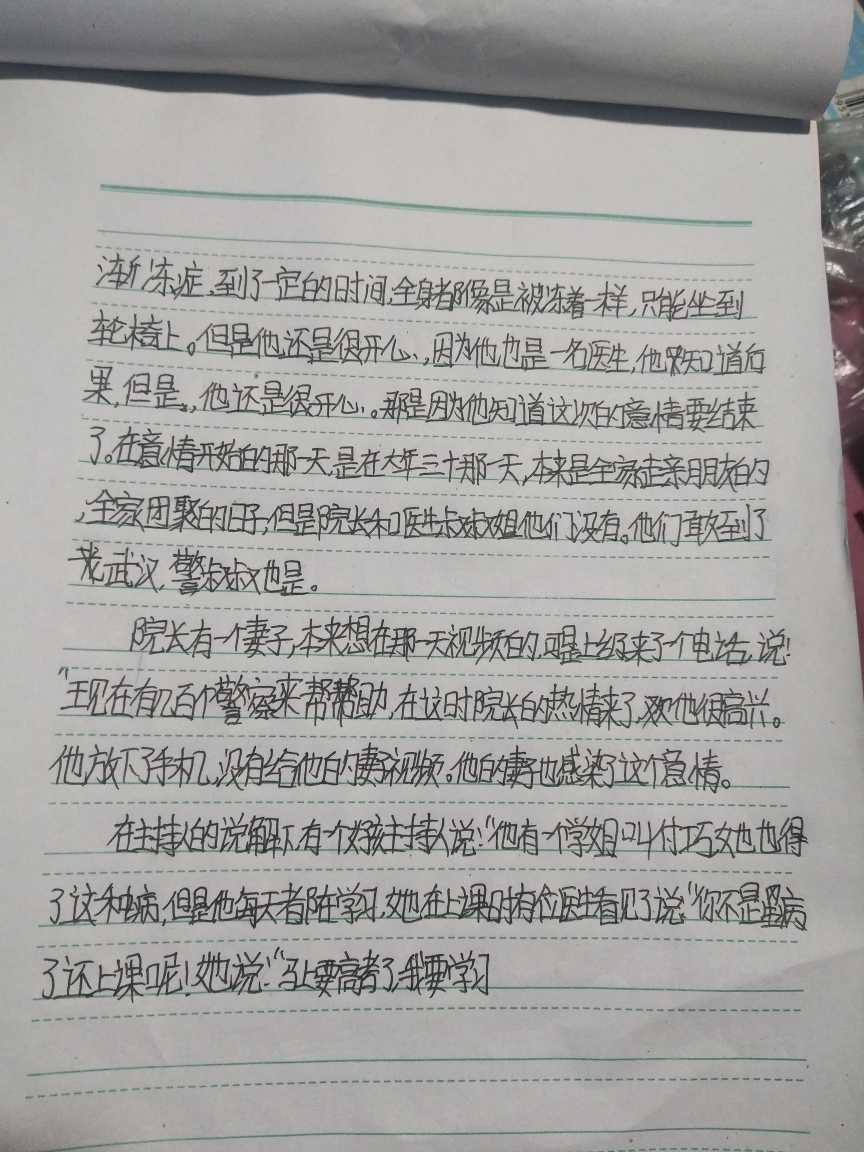 渐冻症,到了一定的时间,全身都像是被冻着一样,只能坐到
轮椅上。但是他还是很开心,因为他也是一名医生,他知道后
果,但是,他还是很开心。那是因为他知道这次的意情要结束
了。在意情开始的那一天,是在大年三十那一天,本来是全家走亲朋友的
,全家团聚的日子,但是院长和医生叔叔姐他们没有。他们敢到了
武汉,警叔叔也是。
院长有一个妻子,本来想在那一天视频的,可是上级来了一个电话,说!
“王现在有几百个警察来帮帮助,在这时院长的热情来了,欢他很高兴。
他放下了手机,没有给他的妻子视频。他的妻子也感染了这个意情。
在主持人的说解下,有一个女孩主持人说:“他有一个学姐叫付巧她也得
了这种病,但是他每天都在学习,她在上课时有位医生看见了说:“你不是病
了还上课呢!她说:“马上要高考了,我要学习